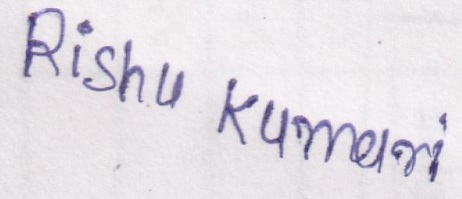 Rishu Kumari